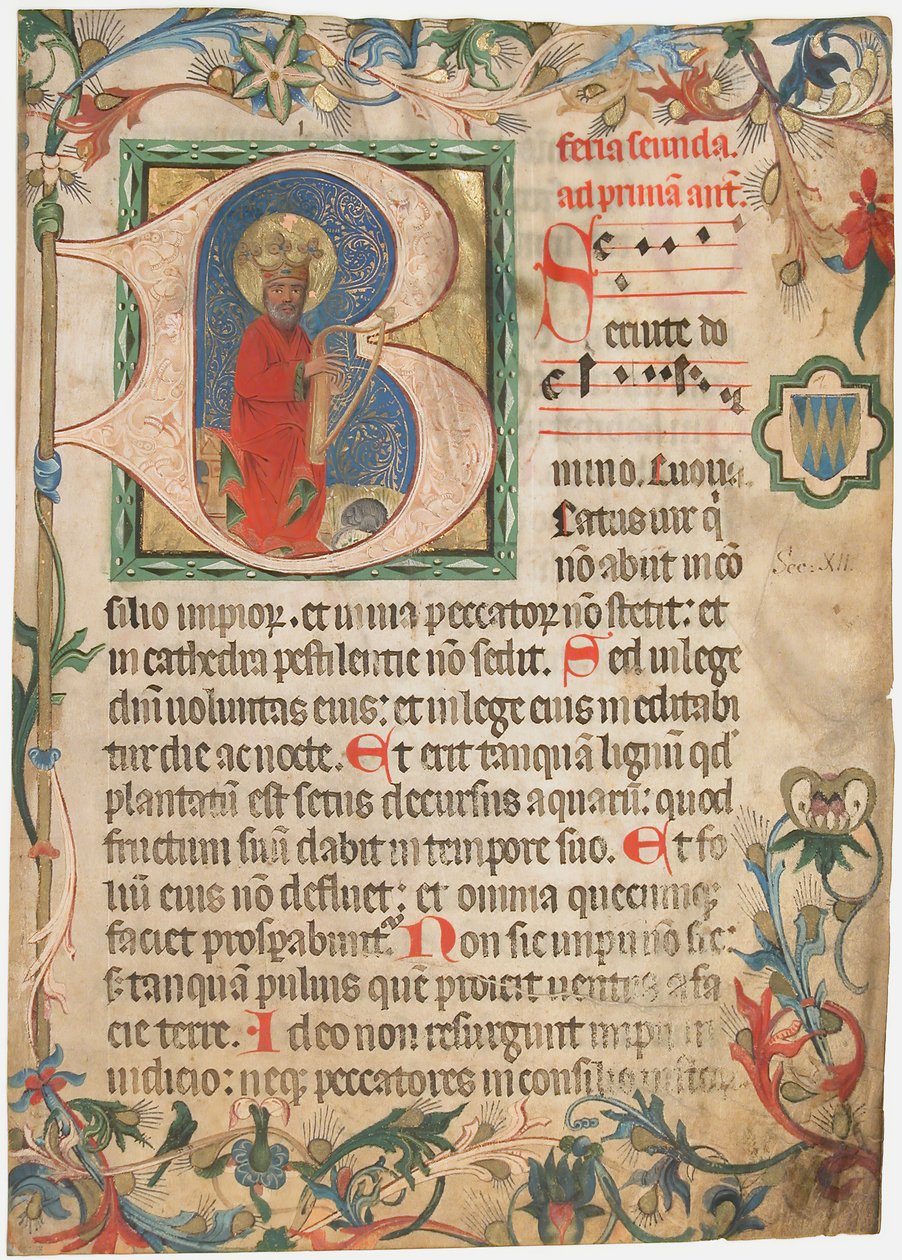 feria seunda.
ad primā ant̄.
Seruite do
mino. Euoua.
B Eatus uir q̇
nō abiit in cō
silio impioꝝ. et in uia peccatoꝝ nō stetit: et
in cathedra pestilentie nō sedit. Sed in lege
dn̄i uoluntas eius: et in lege eius meditabi
tur die ac nocte. Et erit tanquā lignū qd'
plantatū est secus decursus aquarū: quod
fructum suū dabit in tempore suo. Et fo
liū eius nō defluet: et omnia quecumqꝫ
faciet prosꝑabunt᷑. Non sic impii nō sic:
sꝫ tanquā puluis quē proicit uentus a fa
cie terre. Ideo non resurgunt impii in
iudicio: neqꝫ peccatores in consilio
Sec: XII.